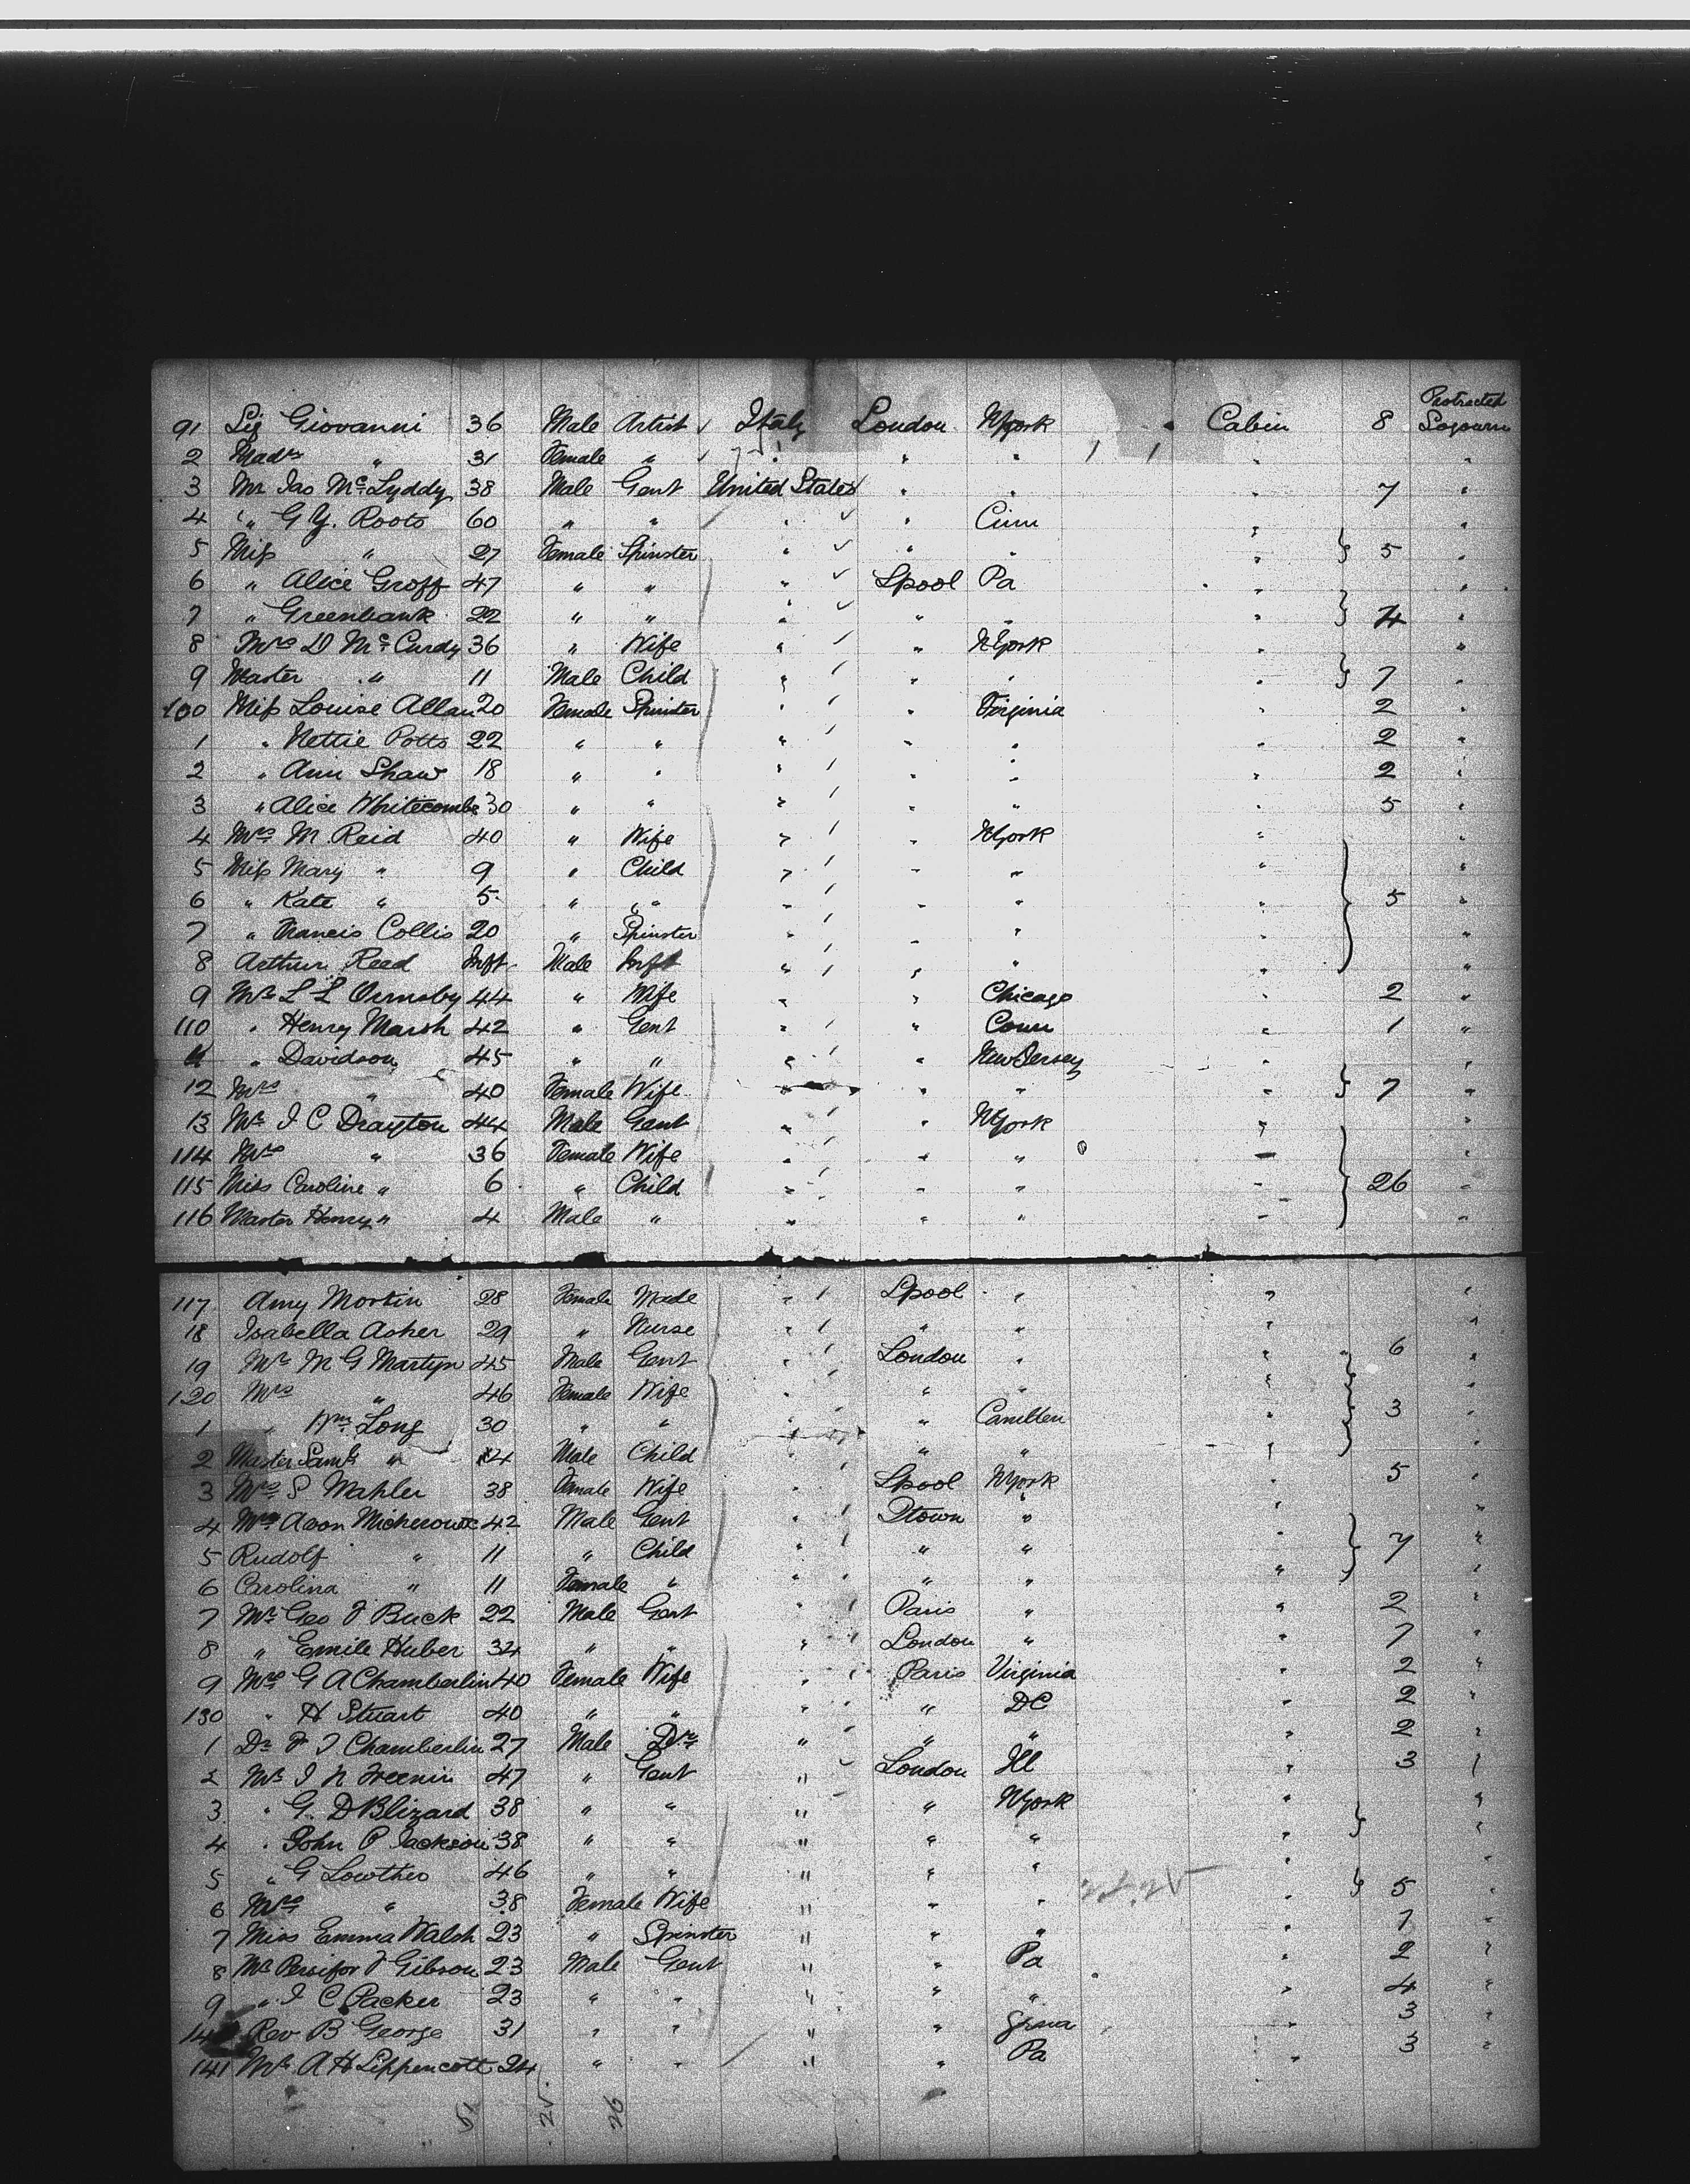 Protracted
91 Sig Giovanni 36 Male Artist Italy London NYork Cabin 8 Sojourn
2 Madm " 31 Female " " " " " "
3 Mr Jas McLyddy 38 Male Gent United States " " " 7 "
4 " G Y. Roots 60 " " " " Cinn " "
5 Miss " 27 Female Spinster " " " " 5 "
6 " Alice Groff 47 " " " Lpool Pa " "
7 " Greenbank 22 " " " " " " 4 "
8 Mrs D McCurdy 36 " Wife " " NYork " "
9 Master " 11 Male Child " " " " 7 "
100 Miss Louise Allan 20 Female Spinster " " Virginia " 2 "
1 " Nettie Potts 22 " " " " " " 2 "
2 " Ann Shaw 18 " " " " " " 2 "
3 " Alice Whitecombe 30 " " " " " " 5 "
4 Mrs M Reid 40 " Wife " " NYork " "
5 Miss Mary " 9 " Child " " " " "
6 " Kate " 5 " " " " " " 5 "
7 " Francis Collis 20 " Spinster " " " " "
8 Arthur Reed Inft Male Inft " " " " "
9 Mr L L Ormsby 44 " Wife " " Chicago " 2 "
110 " Henry Marsh 42 " Gent " " Conn " 1 "
11 " Davidson 45 " " " " New Jersey " "
12 Mrs " 40 Female Wife " " " " 7 "
13 Mr J C Drayton 44 Male Gent " " NYork " "
114 Mrs " 36 Female Wife " " " " "
115 Miss Caroline " 6 " Child " " " " 26 "
116 Master Henry " 4 Male " " " " " "
117 Amy Mortin 28 Female Made " Lpool " " "
18 Isabella Asher 29 " Nurse " " " " "
19 Mr M G Martyn 45 Male Gent " London " " 6 "
120 Mrs " 46 Female Wife " " " " "
1 " Wm Long 30 " " " " Camden " 3 "
2 Master Saml " 4 Male Child " " " " "
3 Mrs S Mahler 38 Female Wife " Lpool NYork " 5 "
4 Avon 42 Male Gent " Qtown " " "
5 Rudolf " 11 " Child " " " " 7 "
6 Carolina " 11 Female " " " " " "
7 Mr Geo F Buck 22 Male Gent " Paris " " 2 "
8 " Emile Huber 34 " " " London " " 7 "
9 Mrs G A Chamberlin 40 Female Wife " Paris Virginia " 2 "
130 " H Stuart 40 " " " " DC " 2 "
1 Dr F J Chamberlin 27 Male Dr " " " " 2 "
2 Mr J N 47 " Gent " London Ill " 3 "
3 " G. D Blizard 38 " " " " NYork " "
4 " John P Jackson 38 " " " " " " "
5 " G Lowther 46 " " " " " " "
6 Mrs " 38 Female Wife " " " " 5 "
7 Miss Emma Walsh 23 " Spinster " " " " 7 "
8 Mr Persifor F Gibson 23 Male Gent " " Pa " 2 "
9 " J C Packer 23 " " " " " " 4 "
14 Rev B George 31 " " " " " 3 "
141 Mr A H Lippencott 24 " " " " Pa " 3 "
51 25 26